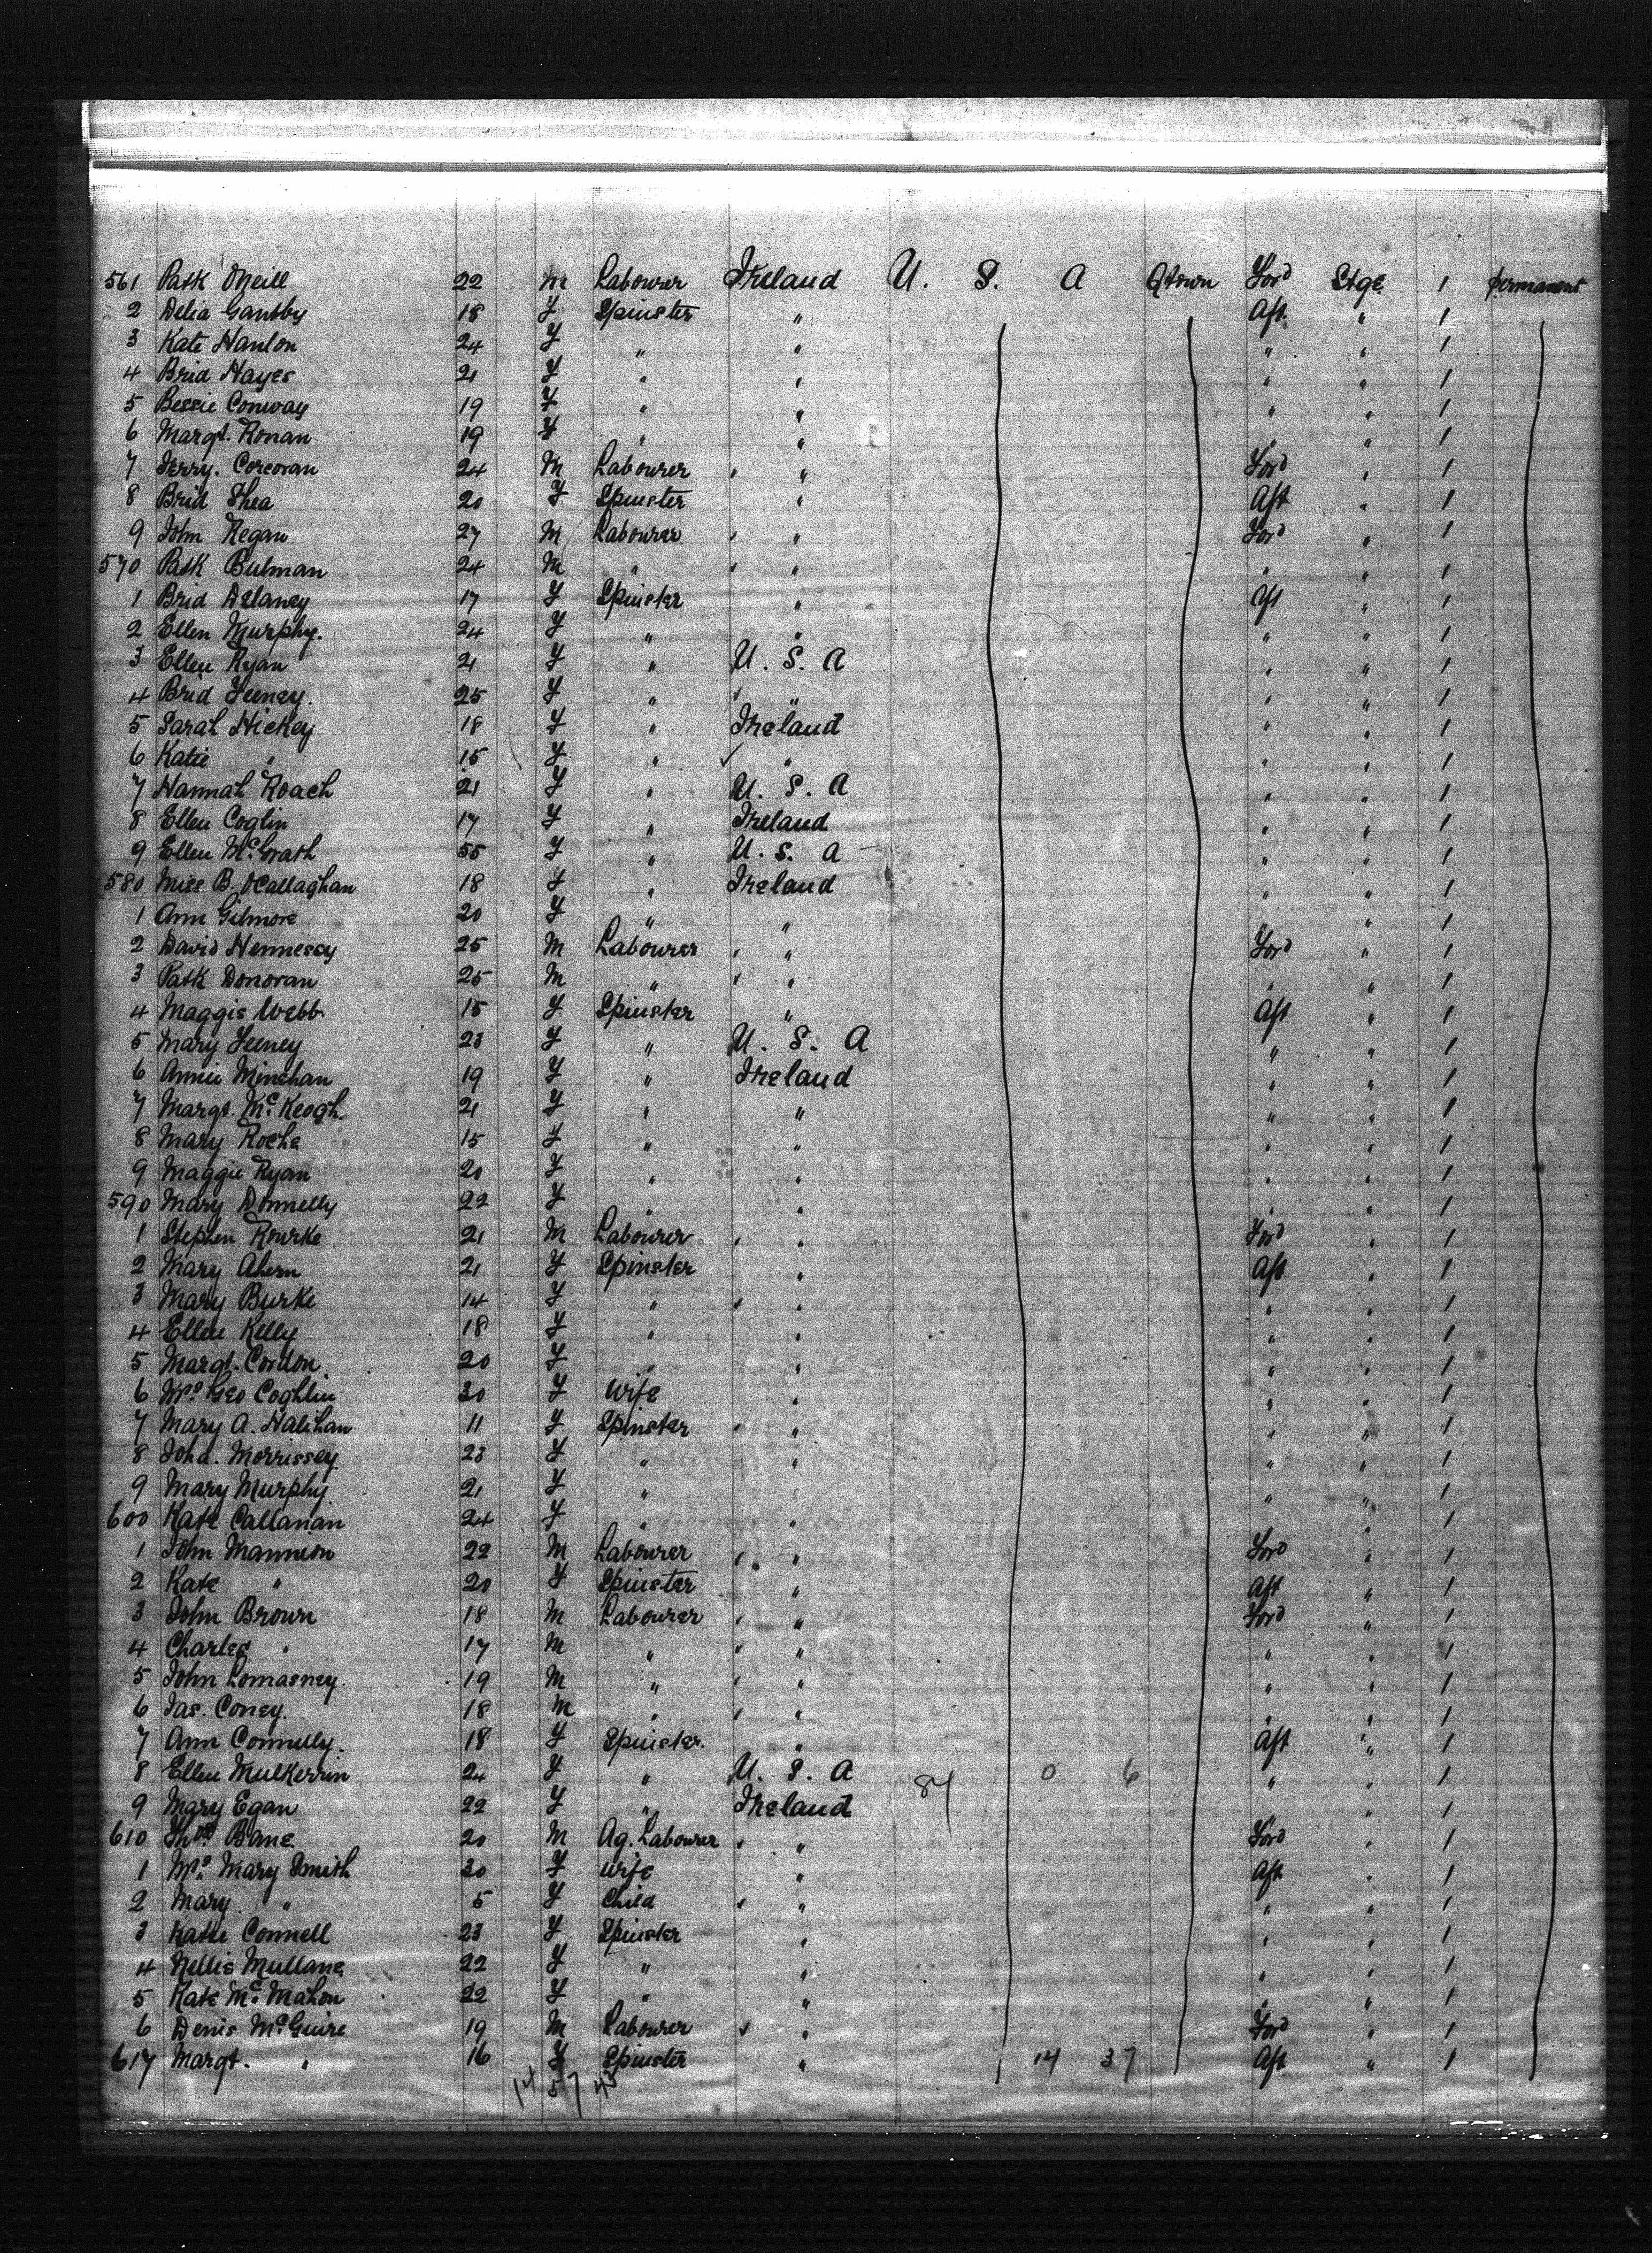 561 Patk O'Neill 22 M Labourer Ireland U. S. A Qtown Ford Stge 1 permanent
2 Delia Gantby 18 F Spinster " Aft " 1
3 Kate Hanlon 24 F " " " " 1
4 Brid Hayes 21 F " " " " 1
5 Bessie Conway 19 F " " " " 1
6 Margt. Ronan 19 F " " " " 1
7 Jerry. Corcoran 24 M Labourer " Ford " 1
8 Brid Shea 20 F Spinster " Aft " 1
9 John Regan 27 M Labourer " Ford " 1
570 Patk Bulman 24 M " " " " 1
1 Brid Delaney 17 F Spinster " Aft " 1
2 Ellen Murphy. 24 F " " " " 1
3 Ellen Ryan 21 F " U. S. A " " 1
4 Brid Feeney. 25 F " " " " 1
5 Sarah Hickey 18 F " Ireland " " 1
6 Katie " 15 F " " " " 1
7 Hannah Roach 21 F " U. S. A " " 1
8 Ellen Coglin 17 F " Ireland " " 1
9 Ellen McGrath 55 F " U. S. A " " 1
580 Miss B. O'Callaghan 18 F " Ireland " " 1
1 Ann Gilmore 20 F " " " " 1
2 David Hennessy 25 M Labourer " Ford " 1
3 Patk Donovan 25 M " " " " 1
4 Maggie Webb 15 F Spinster " Aft " 1
5 Mary Feeney 23 F " U. S. A " " 1
6 Annie Minehan 19 F " Ireland " " 1
7 Margt. McKeogh 21 F " " " " 1
8 Mary Roche 15 F " " " " 1
9 Maggie Ryan 20 F " " " " 1
590 Mary Donnelly 22 F " " " " 1
1 Stephen Rourke 21 M Labourer " Ford " 1
2 Mary Ahern 21 F Spinster " Aft " 1
3 Mary Burke 14 F " " " " 1
4 Ellen Kelly 18 F " " " " 1
5 Margt. Condon 20 F " " " " 1
6 Mrs Geo Coghlin 30 F Wife " " " 1
7 Mary A. Halihan 11 F Spinster " " " 1
8 Joha. Morrissey 23 F " " " " 1
9 Mary Murphy 21 F " " " " 1
600 Kate Callanan 24 F " " " " 1
1 John Mannion 22 M Labourer " Ford " 1
2 Kate " 20 F Spinster " Aft " 1
3 John Brown 18 M Labourer " Ford " 1
4 Charles " 17 M " " " " 1
5 John Lomasney. 19 M " " " " 1
6 Jas. Coney. 18 M " " " " 1
7 Ann Connelly. 18 F Spinster. " Aft " 1
8 Ellen Mulkerrin 24 F " U. S. A 84 0 6 " " 1
9 Mary Egan 22 F " Ireland " " 1
610 Thos Bane 20 M Ag. Labourer " Ford " 1
1 Mrs Mary Smith 30 F Wife " Aft " 1
2 Mary " 5 F Child " " " 1
3 Katie Connell 23 F Spinster " " " 1
4 Nellie Mullane 22 F " " " " 1
5 Kate McMahon 22 F " " " " 1
6 Denis McGuire 19 M Labourer " Ford " 1
617 Margt. " 16 F Spinster " 14 37 Aft " 1
14 57 43